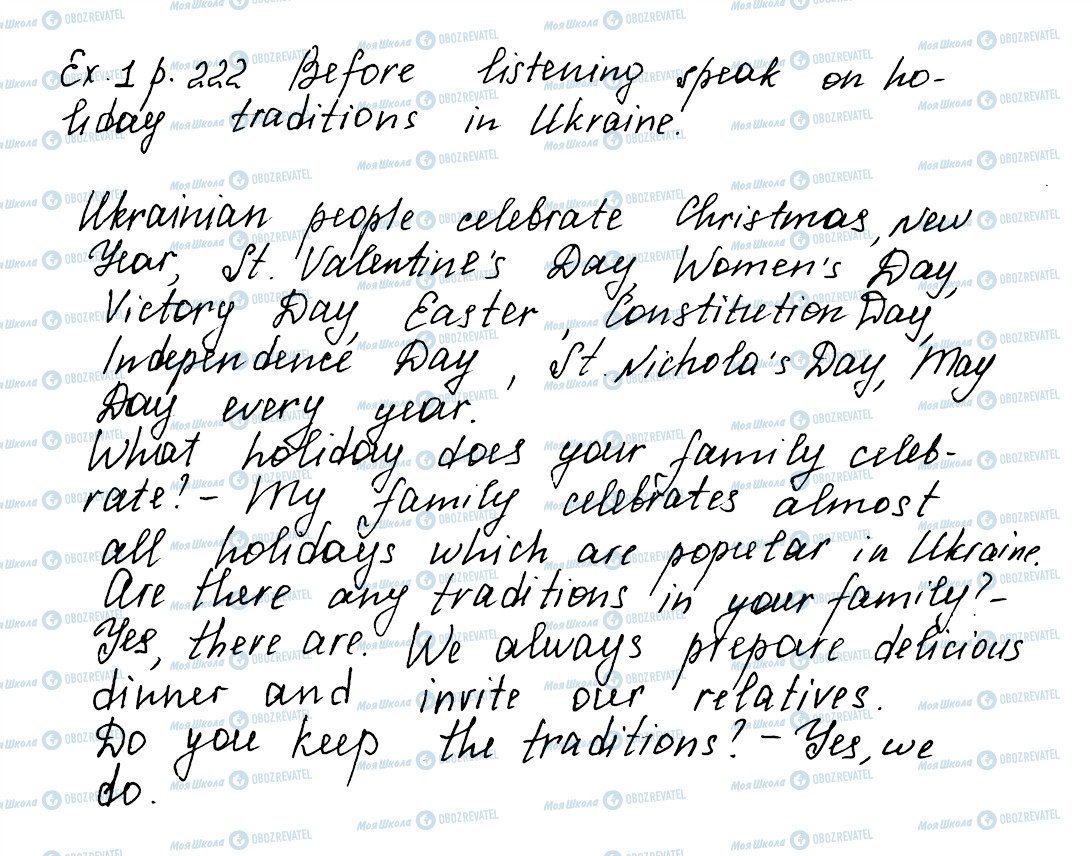 Ex. 1 p. 222 Before listening speak on ho-
liday traditions in Ukraine.
Ukrainian people celebrate Christmas, New
Year, St. Valentine's Day, Women's Day,
Victory Day, Easter, Constitution Day,
Independence Day, St. Nichola's Day, May
Day every year.
What holiday does your family celeb-
rate? – My family celebrates almost
all holidays which are popular in Ukraine.
Are there any traditions in your family? –
Yes, there are. We always prepare delicious
dinner and invite our relatives.
Do you keep the traditions? – Yes, we
do.